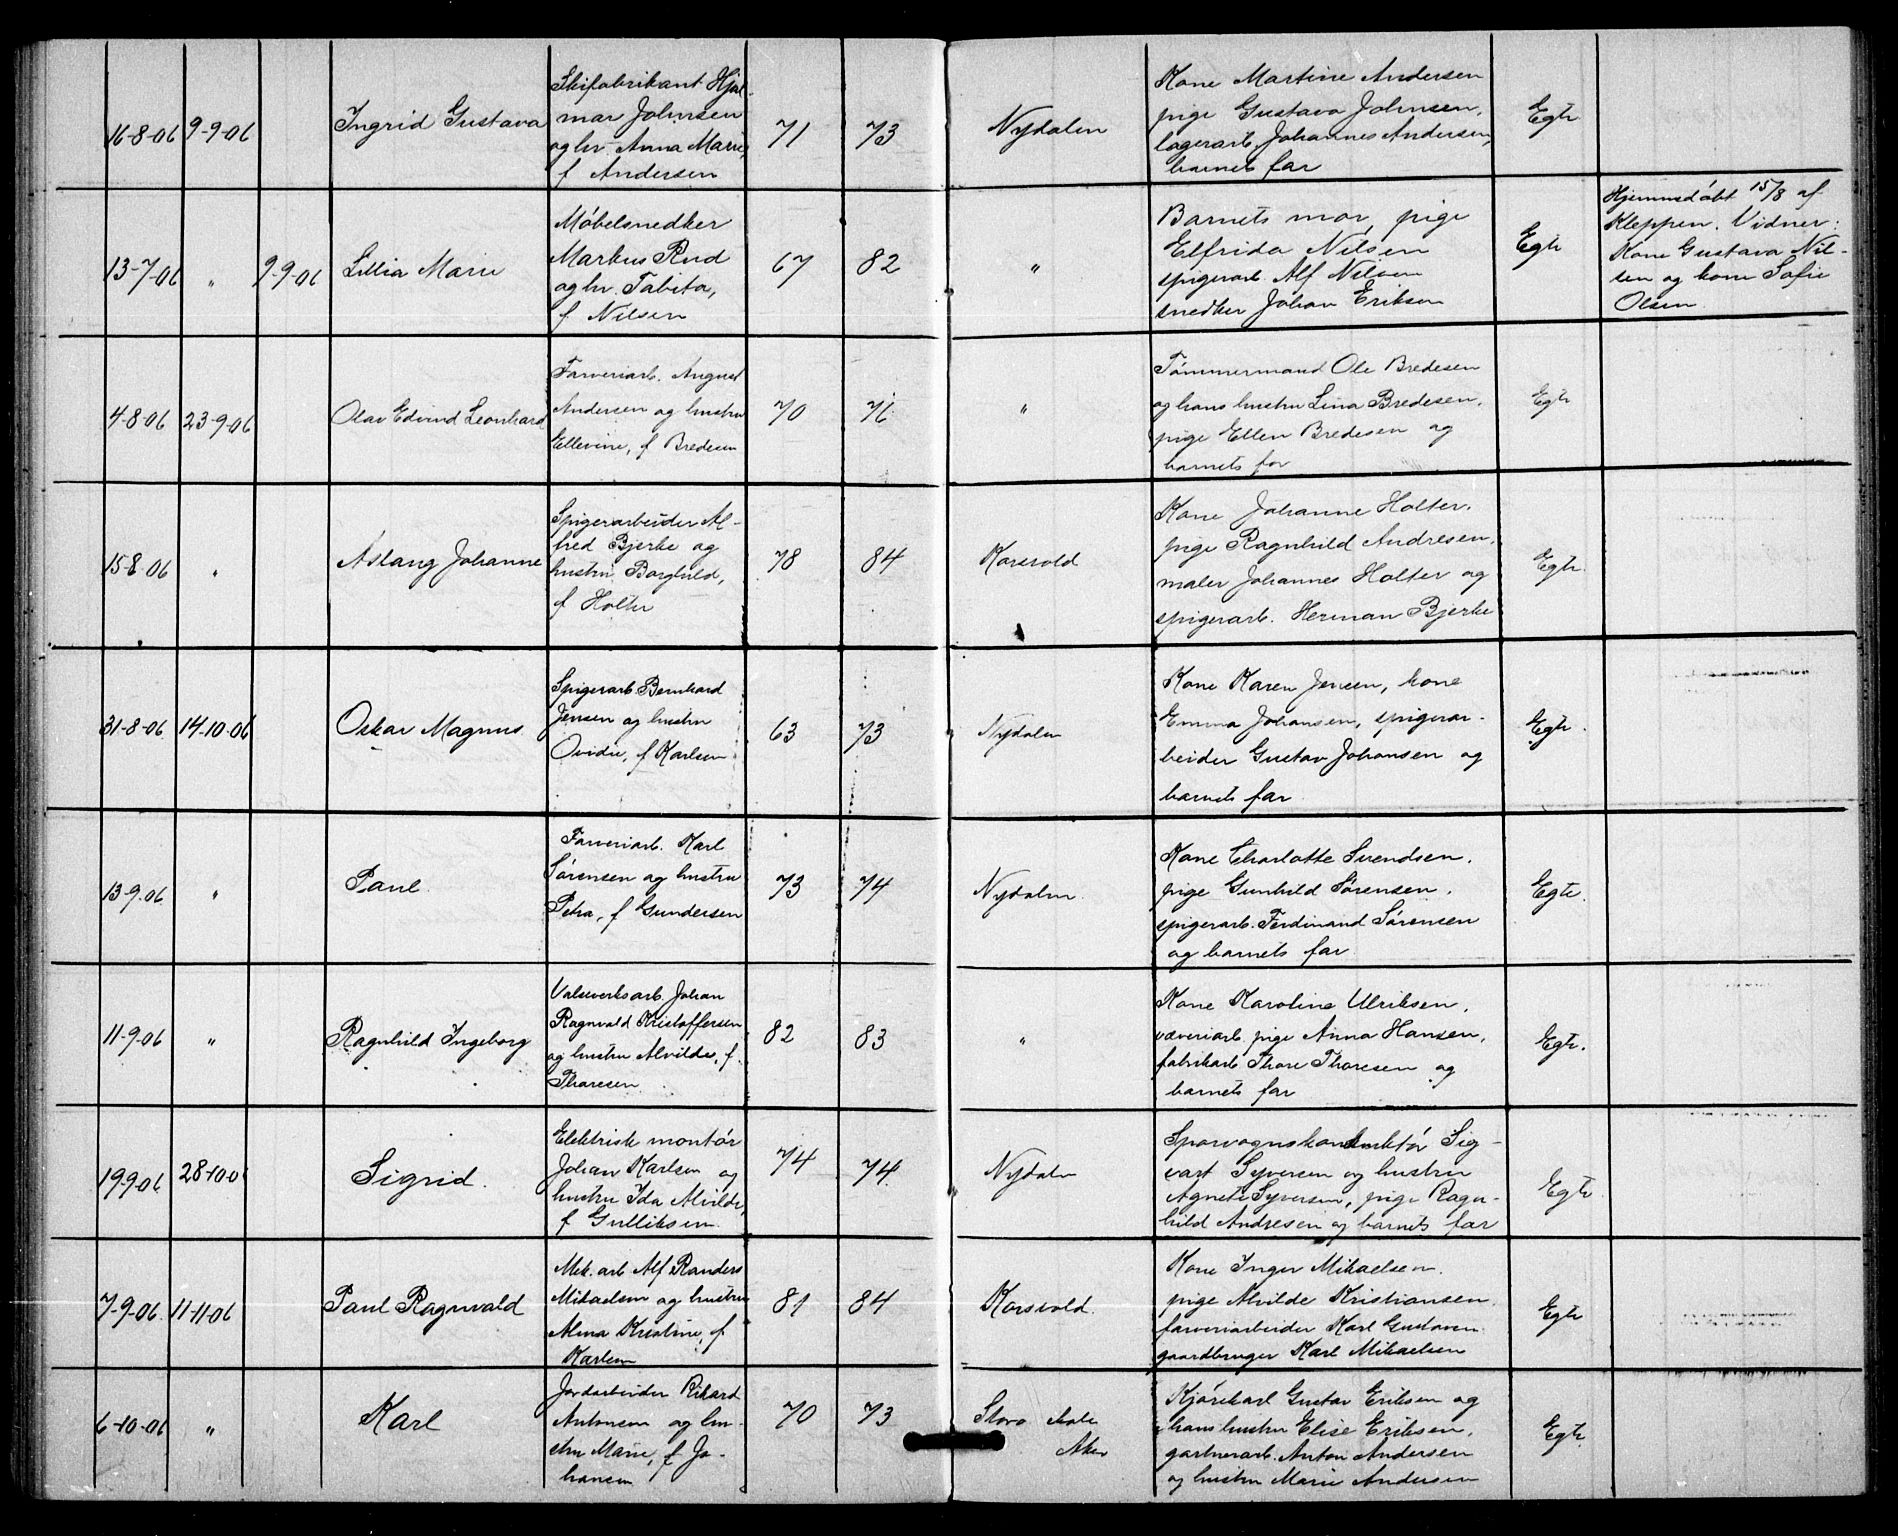 16-8-06 9-9-06 Ingrid Gustava
Skifabrikant Hjal-
mar Johnsen
og hr. Anna Marie,
f Andersen
71 73 Nydalen
Kone Martine Andersen
pige Gustava Johnsen,
lagerarb. Johannes Andersen,
barnets far
Egte
13-7-06 " 9-9-06 Lillia Marie
Møbelsnedker
Markus Rud
og hr. Tabita,
f Nilsen
67 82 "
Barnets mor, pige
Elfrida Nilsen
spigerarb. Alf Nilsen
snedker Johan Eriksen
Egte
Hjemmedøbt 15/8 af
Kleppen. Vidner:
Kone Gustava Nil-
sen og kone Sofie
Olsen
4-8-06 23-9-06 Olav Edvind Leonhard
Farveriarb. August
Andersen og hustru
Ellevine, f Bredesen
70 76 "
Tømmermand Ole Bredesen
og hans hustru Lina Bredesen,
pige Ellen Bredesen og
barnets far
Egte
15-8-06 " Aslaug Johanne
Spigerarbeider Al-
fred Bjerke og
hustru Borghild,
f Holter
78 84 Korsvold
Kone Johanne Holter,
pige Ragnhild Andresen,
maler Johannes Holter og
spigerarb. Herman Bjerke
Egte.
31-8-06 14-10-06 Oskar Magnus
Spigerarb. Bernhard
Jensen og hustru
Ovidie, f Karlsen
63 73 Nydalen
Kone Karen Jensen, kone
Emma Johansen, spigerar-
beider Gustav Johansen og
barnets far
Egte.
13-9-06 " Paul.
Farveriarb. Karl
Sørensen og hustru
Petra, f Gundersen
73 74 Nydalen.
Kone Charlotte Svendsen,
pige Gunhild Sørensen,
spigerarb. Ferdinand Sørensen
og barnets far
Egte.
11-9-06 " Ragnhild Ingeborg
Valseverksarb. Johan
Ragnvald Kristoffersen
og hustru Alvilde, f.
Thoresen
82 83 "
Kone Karoline Ulriksen,
væveriarb. pige Anna Hansen,
fabrikarb. Thore Thoresen og
barnets far
Egte.
19-9-06 28-10-06 Sigrid.
Elektrisk montør
Johan Karlsen og
hustru Ida Alvilde,
f Gulliksen
74 74 Nydalen
Sporvognskonduktør Sig-
vart Syversen og hustru
Agnete Syversen, pige Ragn-
hild Andresen og barnets far
Egte
7-9-06 11-11-06 Paul Ragnvald
Mek. arb Alf Randers
Mikaelsen og hustru
Alma Kristine, f
Karlsen
81 84 Korsvold.
Kone Inger Mikaelsen,
pige Alvilde Kristiansen,
farveriarbeider Karl Gustavsen
gaardbruger Karl Mikaelsen
Egte
6-10-06 " Karl
Jordarbeider Rikard
Antonsen og hu-
stru Marie, f Jo-
hansen
70 73 Storo
Aker
Kjørekarl Gustav Eriksen og
hans hustru Elise Eriksen,
gartnerarb. Anton Andersen
og hustru Marie Andersen
Egte